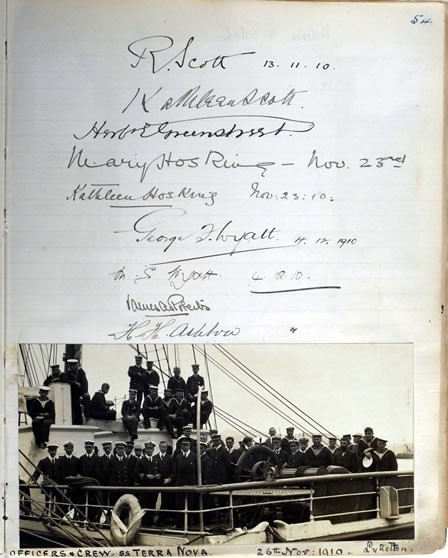 54
R. Scott 13.11.10.
Kathleen Scott.
Herbt E Greenstreet.
Mary Hosking - Nov. 23rd
Kathleen Hosking Nov: 23: 10:
George F. Wyatt. 4.12.1910
S Wyatt.
James A. Roberts
H. H. Ashton "
OFFICERS & CREW. SS TERRA NOVA. 26th Nov: 1910. Lyttelton.